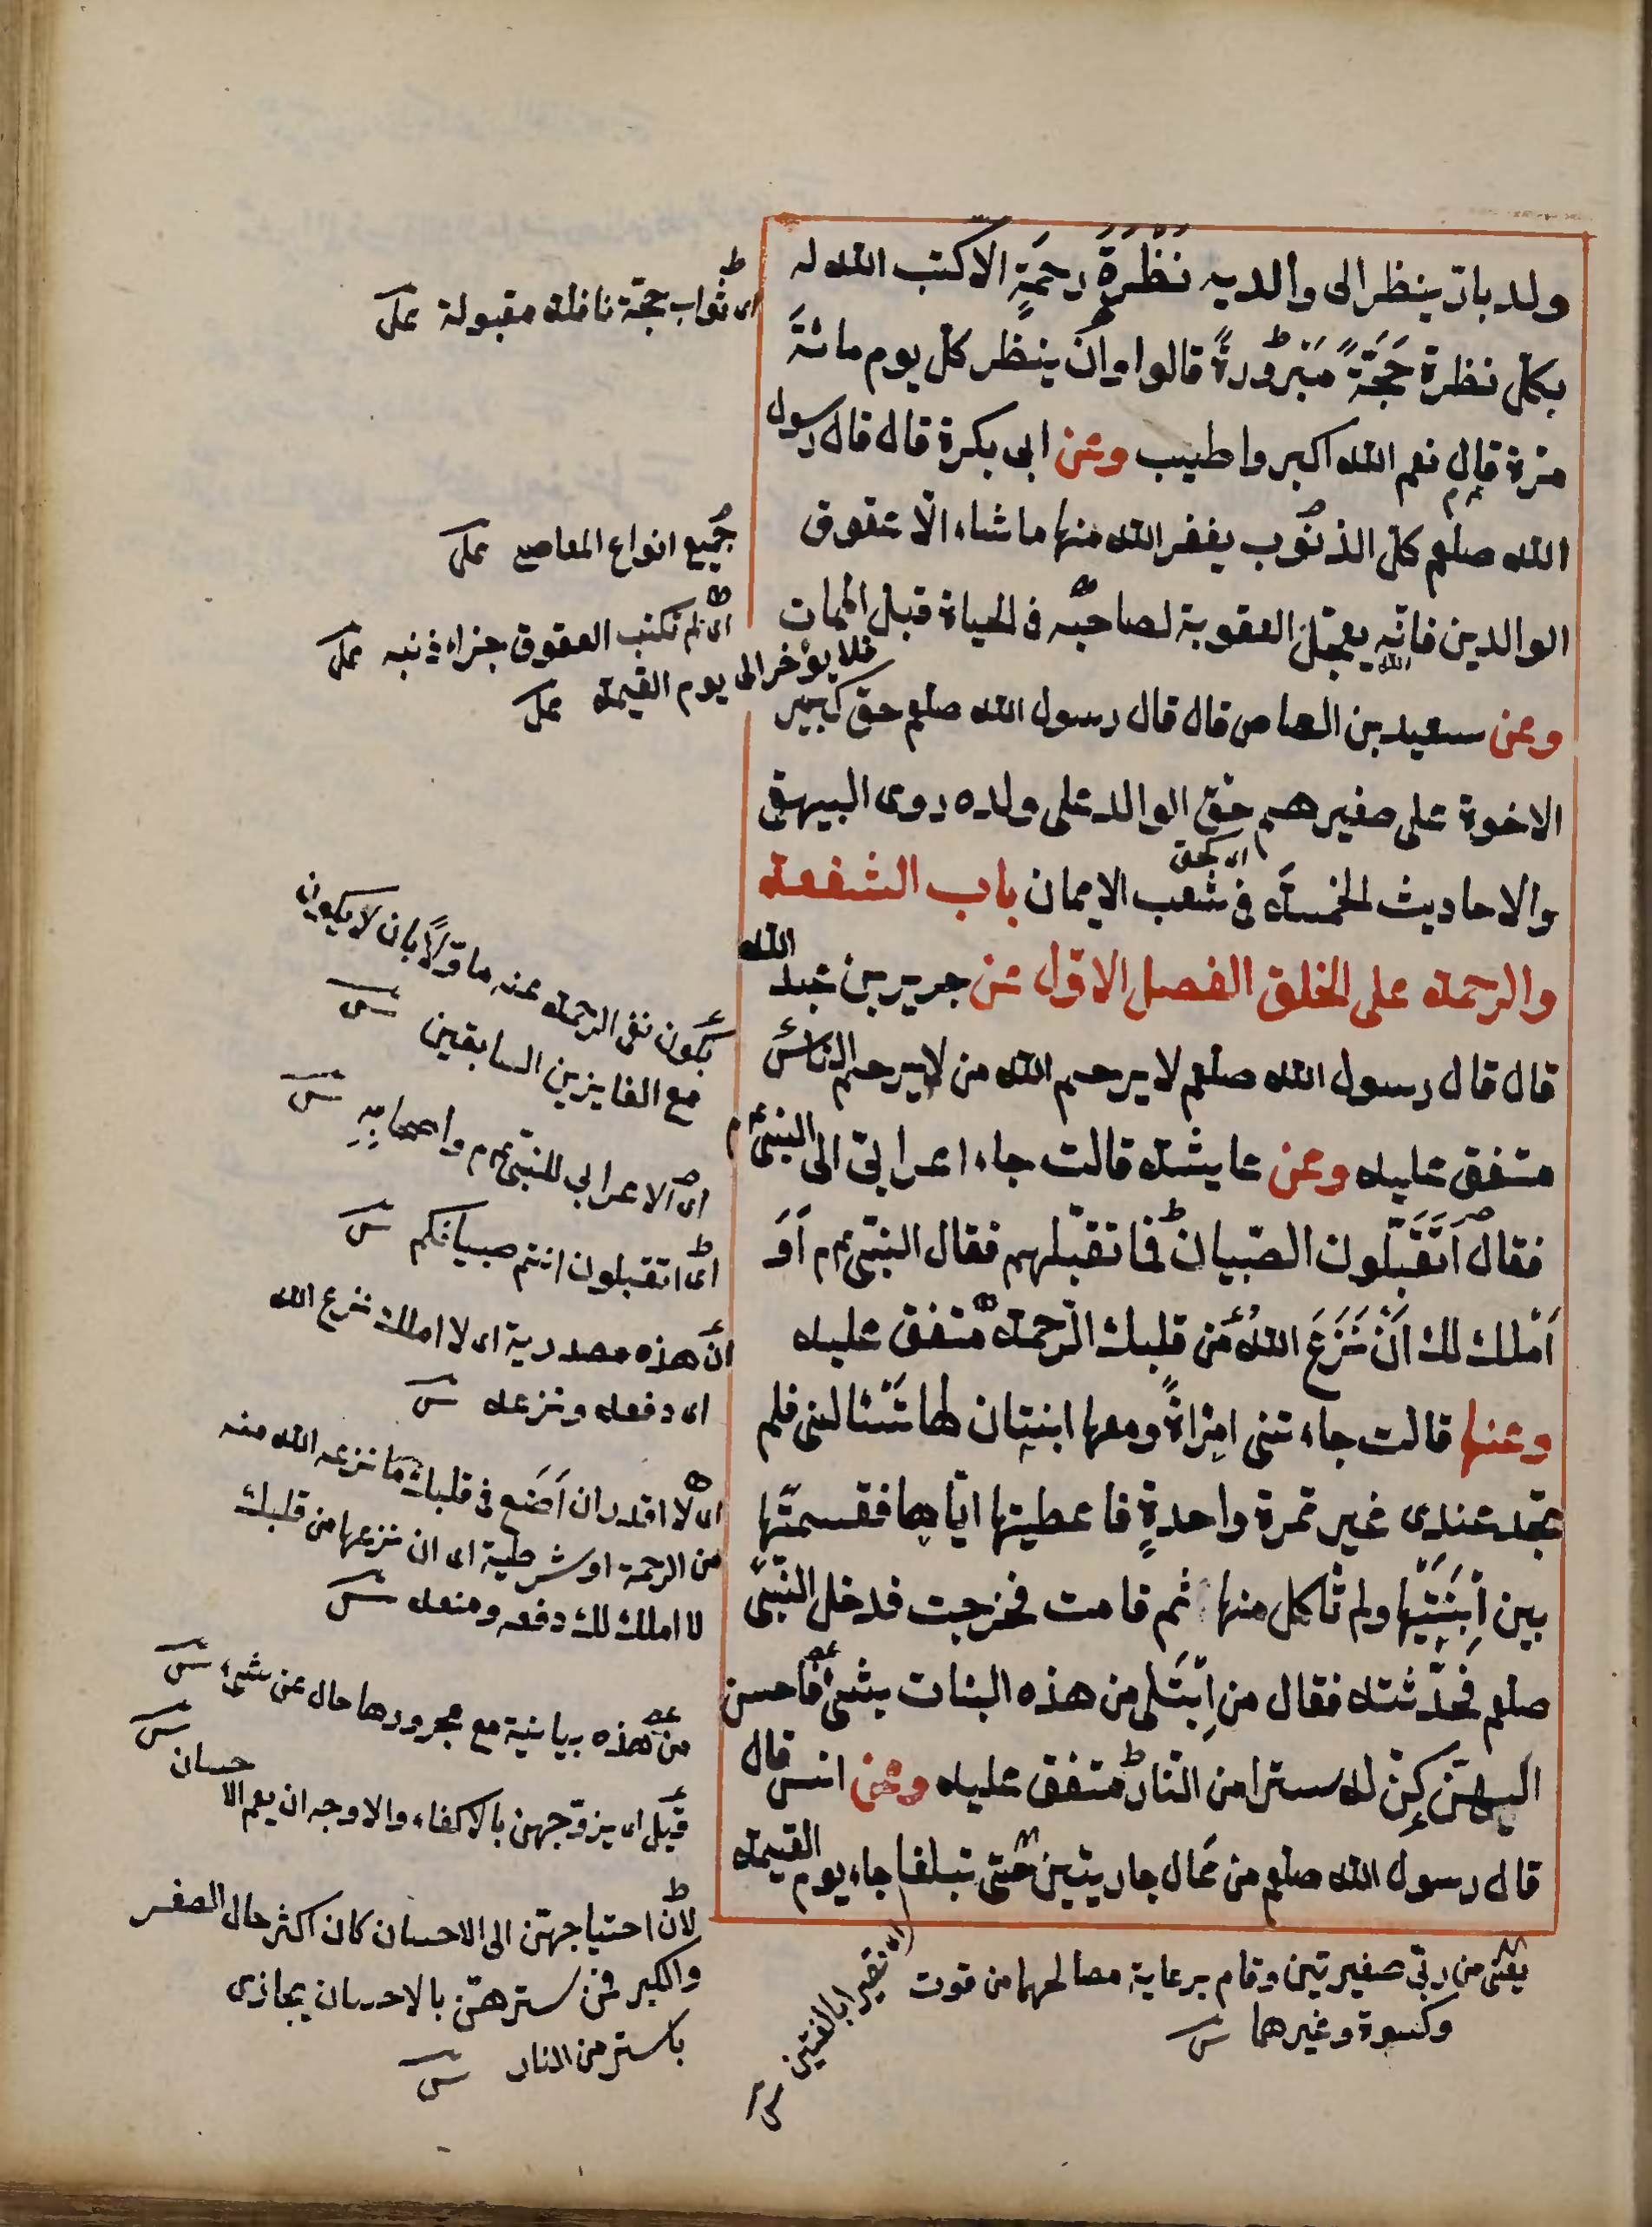 ولد بارّ ينظر الى والديه نَظْرَةَ رحمَةٍ الا كتب الله له
بكل نظرة حَجَّةً مَبْرُورةً قالوا وان ينظر كل يوم مائةَ
مرة قال نعم الله اكبر واطيب وعن ابى بكرة قال قال رسول
الله صلعم كل الذنوب يغفر الله منها ما شاء الّا عقوق
الوالدين فانّه يعجّل العقوبة لصاحبه فى الحياة قبل الممات
الله
وعن سعيد بن العاص قال قال رسول الله صلعم حق كبير
الاخوة على صغيرهم حق الوالد على ولده روى البيهقى
اى كحق
والاحاديث الخمسة فى شعب الايمان باب الشفقة
والرحمة على الخلق الفصل الاوّل عن جرير بن عبد الله
قال قال رسول الله صلعم لا يرحم الله من لا يرحم الناس
متفق عليه وعن عايشة قالت جاء اعرابى الى النبى عم
فقال اَتُقَبّلون الصّبيان فما نقبّلهم فقال النبّى عم اَوَ
اَمْلك لك اَنْ نَزَعَ اللهُ من قلبك الرّحمة متفق عليه
وعنها قالت جاءتنى امْراةٌ ومعها ابنتان لها تَسْئالنى فلم
تجد عندى غير تمرة واحدةٍ فاعطيتها ايّاها فقسمتها
بين اِبْنَتَيْها ولم تأكل منها ثم قامت فخرجت فدخل النبّى
صلعم فحدّثته فقال من اِبْتَلى من هذه البنات بشئ فاحسن
اليهنّ كنّ له سترا من النار متفق عليه وعن انس قال
قال رسول الله صلعم من عال جاريتين حتّى تبلغا جاء يوم القيمة
اى ثواب حجّة نافلة مقبولة على
جميع انواع المعاصى على
اى لمرتكب العقوق جزاء ذنبه على
فلا يؤخر الى يوم القيمة على
يكون نفى الرحمة عنه ماوّلًا بان لا يكون
مع الفايزين السابقين
اى الاعرابى للنبّى عم واصحابِهِ
اى اتقبلون انتم صبيانكم
ان هذه مصدرية اى لا املك نزع الله
اى دفعه ونزعه
اى لا اقدر ان اَضَع فى قلبك ما نزعه الله منه
من الرحمة او شرطية اى ان نزعها من قلبك
لا املك لك دفعه ومنعه
من هذه بيانية مع مجرورها حال عن شئ
قيل اى يزوّجهن بالاكفاء والاوجه ان يعم الاحسان
لانّ احتياجهنّ الى الاحسان كان اكثر حال الصغر
والكبر فمن سترهنّ بالاحسان يجازى
باستر من النار
يعنى من ربّى صغيرتين وقام برعاية مصالحهما من قوت
وكسوة وغيرهما
اى تصيرا بالغتين